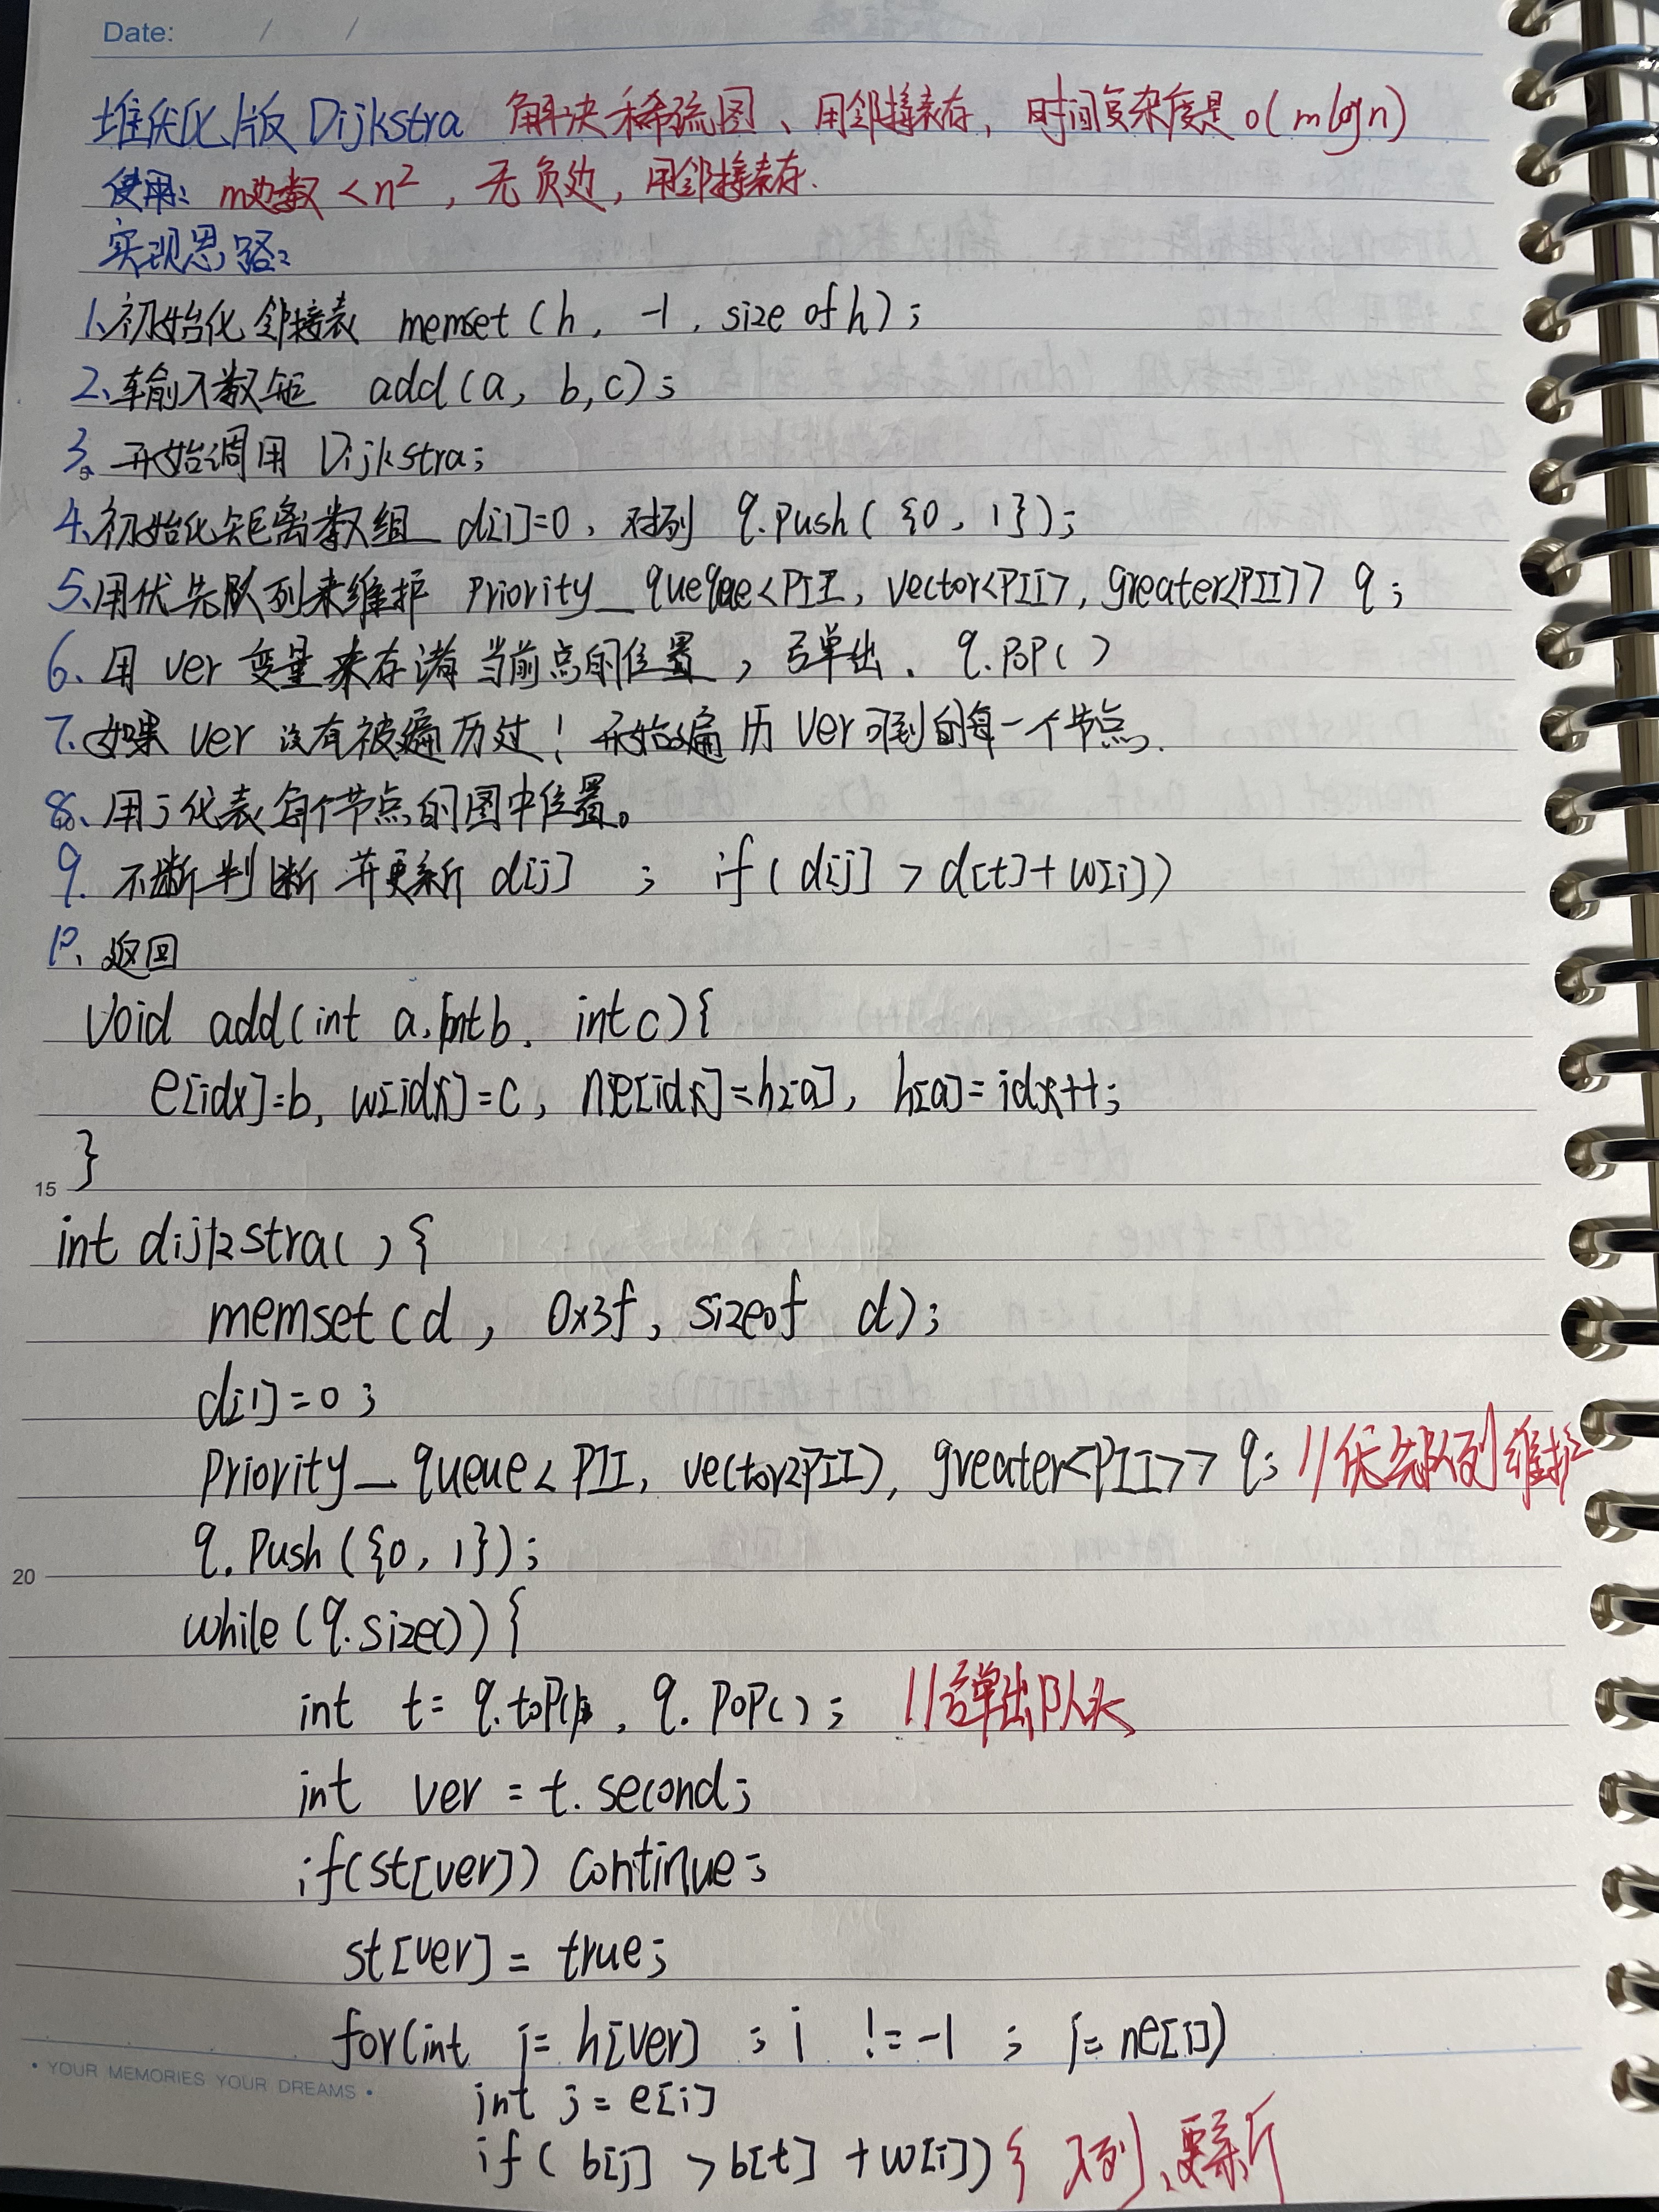 Date: / /
堆优化版Dijkstra 解决稀疏图、用邻接表存，时间复杂度是o(mlogn)
使用：m边数<n²，无负边，用邻接表存.
实现思路：
1、初始化邻接表 memset(h, -1, size of h);
2、输入数据 add(a, b,c);
3、开始调用 Dijkstra;
4、初始化距离数组 d[1]=0，对列 q.push({0, 1});
5、用优先队列来维护 Priority_queue<PII, vector<PII>, greater<PII>> q;
6、用 ver 变量来存储当前点的位置，弹出. q.pop()
7、如果 ver 没有被遍历过! 开始遍历 ver 可到的每一个节点.
8、用j代表每个节点的图中位置。
9. 不断判断并更新 d[j] ; if(d[j] > d[t]+w[i])
10、返回
void add(int a, int b, int c){
e[idx]=b, w[idx]=c, ne[idx]=h[a], h[a]=idx++;
}
15
int dijkstra(){
memset(d, 0x3f, sizeof d);
d[1]=0;
Priority_queue<PII, vector<PII>, greater<PII>> q; //优先队列维护
q.push({0, 1});
20
while(q.size()){
int t= q.top(), q.pop(); //弹出队头
int ver = t.second;
if(st[ver]) continue;
st[ver] = true;
for(int i= h[ver] ; i != -1 ; i= ne[i])
• YOUR MEMORIES YOUR DREAMS •
int j = e[i]
if( b[j] > b[t] + w[i]){ 更新